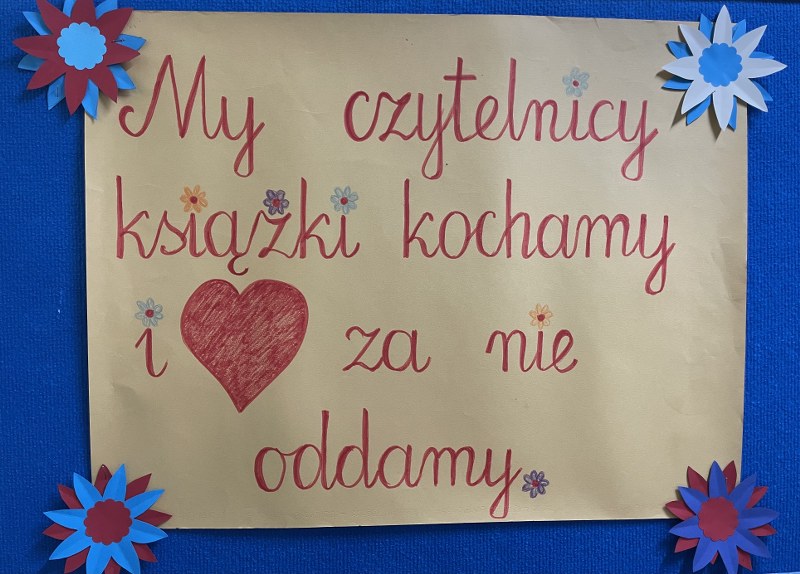 My czytelnicy
książki kochamy
i ❤ za nie
oddamy.